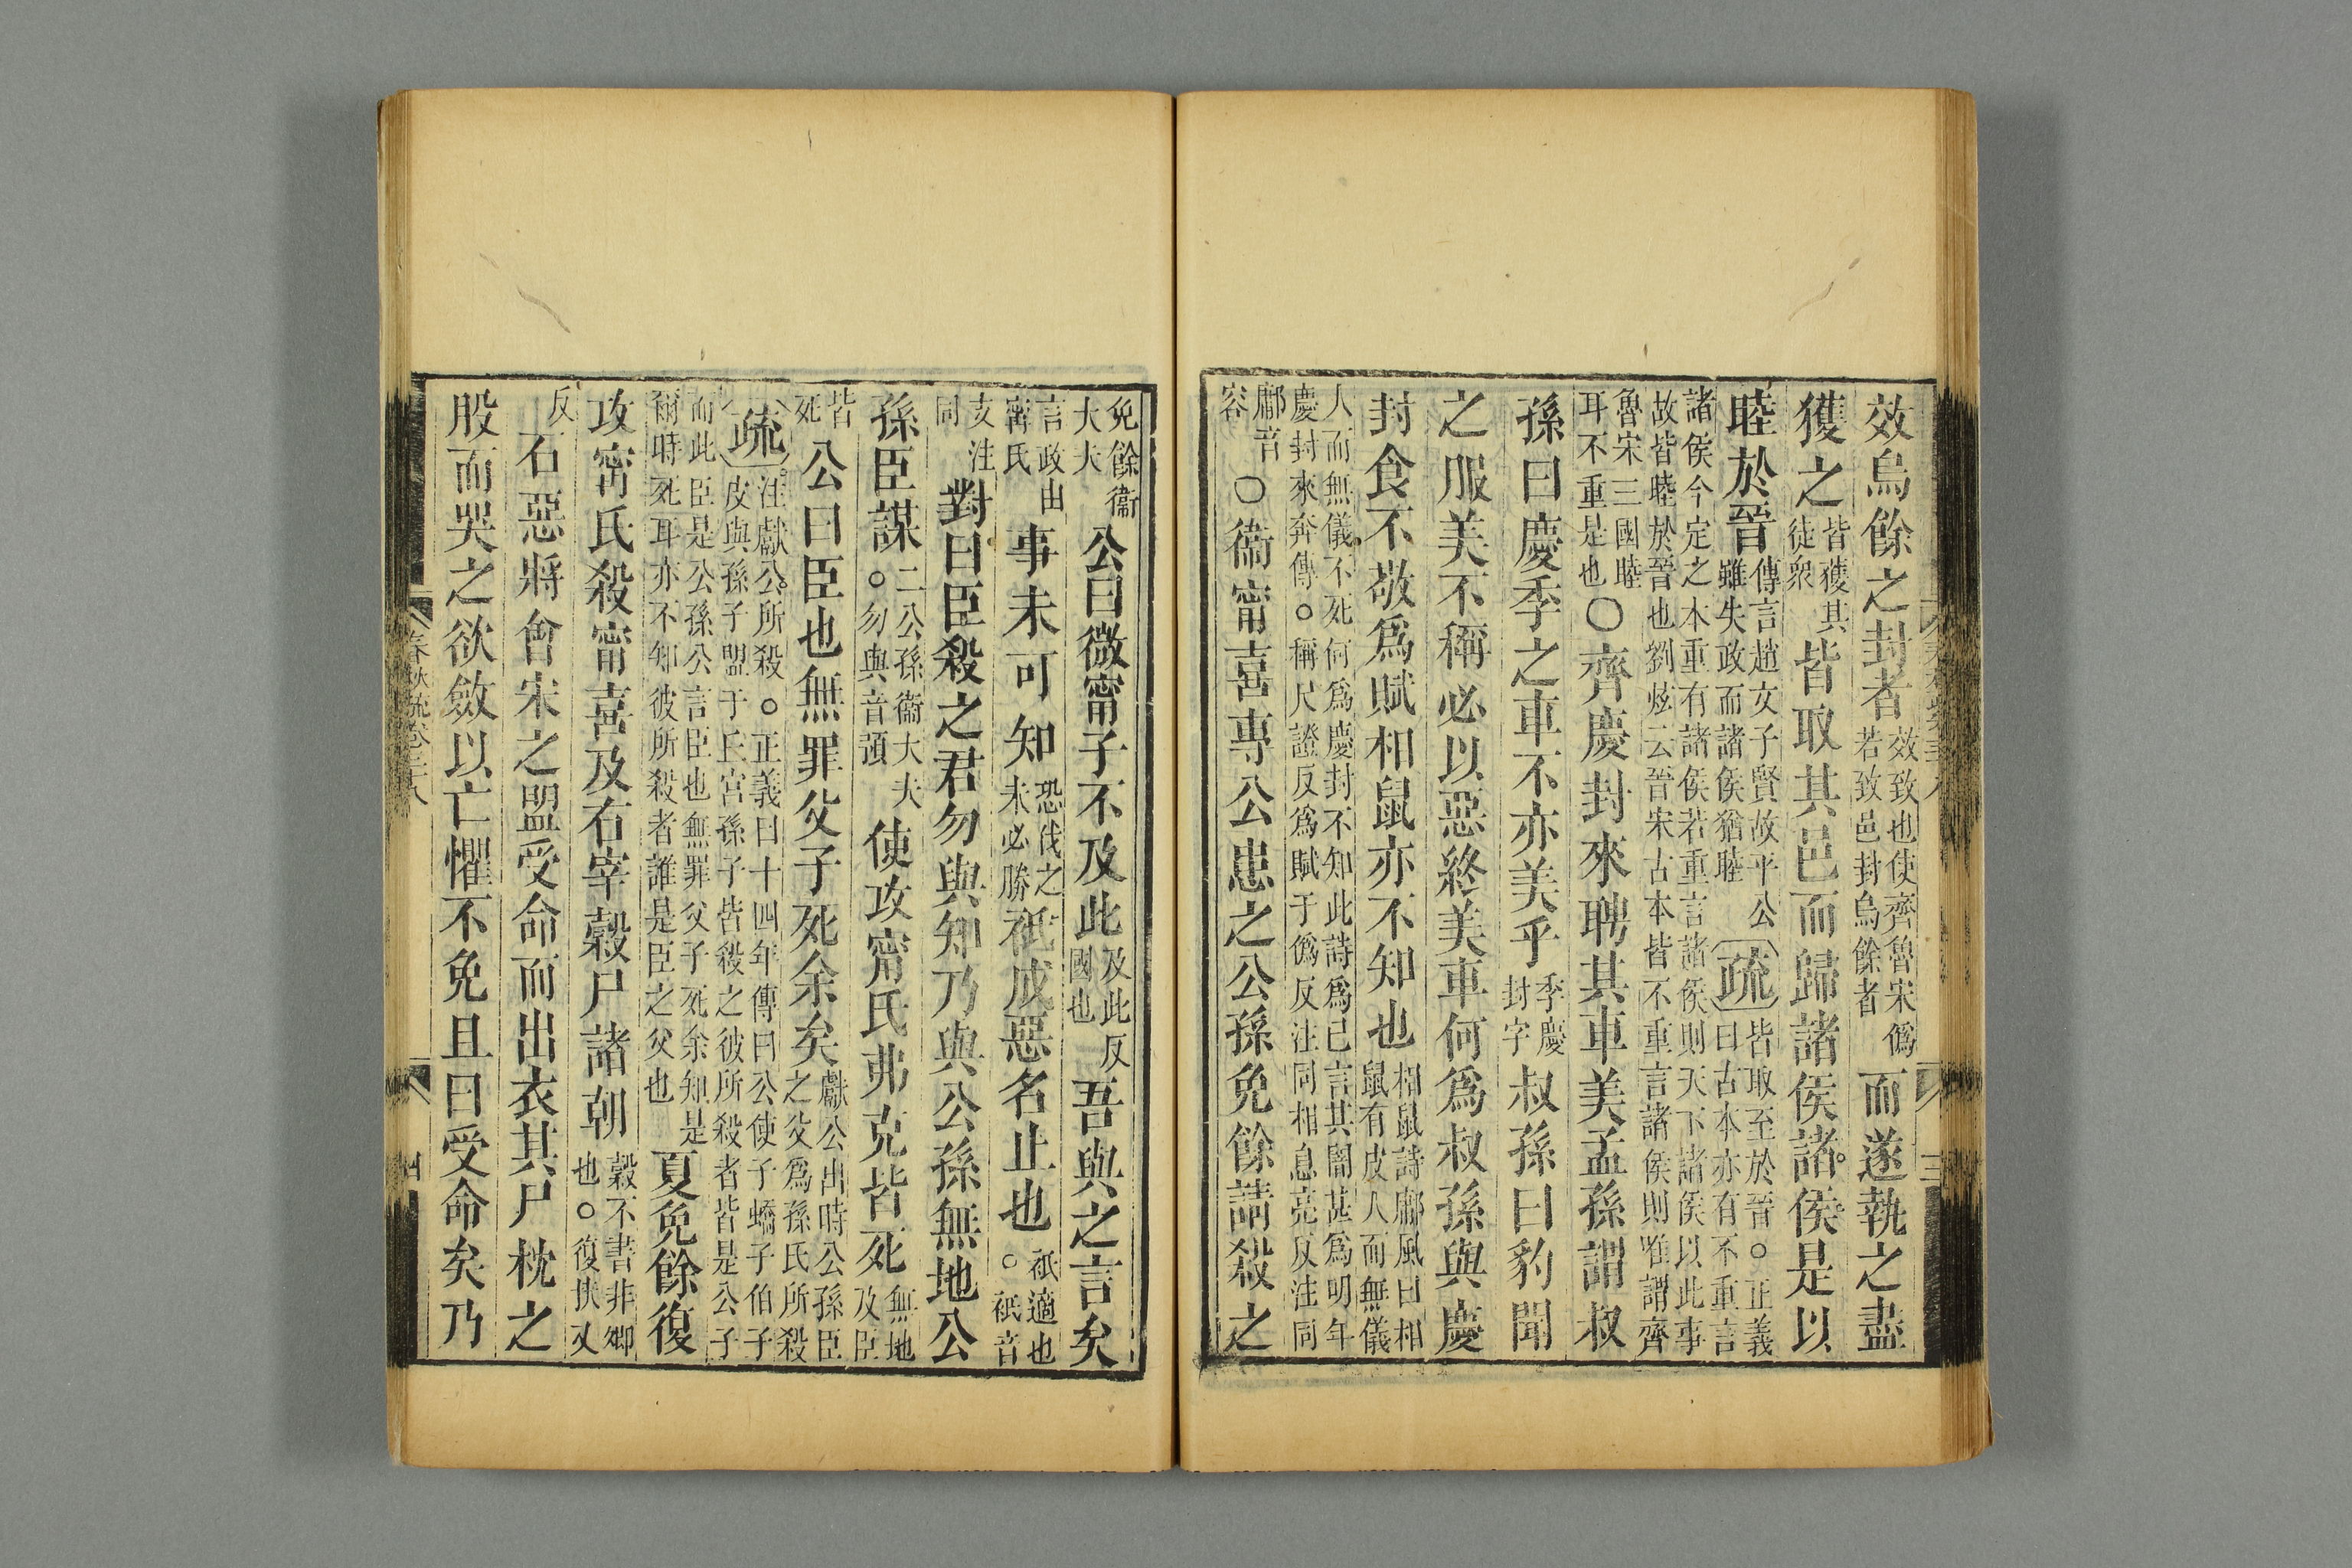 效烏餘之封者效致也使齊魯宋僞若致邑封烏餘者而遂執之盡
獲之皆獲其徒衆皆取其邑而歸諸侯諸侯是以
睦於晉傳言趙文子賢故平公雖失政而諸侯猶睦疏皆取至於晉○正義曰古本亦有不重言
諸侯今定之本重有諸侯若重言諸侯則天下諸侯以此事
故皆睦於晉也劉炫云晉宋古本皆不重言諸侯則唯謂齊
魯宋三國睦耳不重是也○齊慶封來聘其車美孟孫謂叔
孫曰慶季之車不亦美乎季慶封字叔孫曰豹聞
之服美不稱必以惡終美車何爲叔孫與慶
封食不敬爲賦相鼠亦不知也相鼠詩鄘風曰相鼠有皮人而無儀
人而無儀不死何爲慶封不知此詩爲已言其闇甚爲明年
慶封來奔傳○稱尺證反爲賦于僞反注同相息亮反注同
鄘音容○衞甯喜專公患之公孫免餘請殺之
免餘衞大夫公曰微甯子不及此及此反國也吾與之言矣
言政由甯氏事未可知恐伐之未必勝祗成惡名止也祗適也○祗音
支注同對曰臣殺之君勿與知乃與公孫無地公
孫臣謀二公孫衞大夫○勿與音預使攻甯氏弗克皆死無地及臣
皆死公曰臣也無罪父子死余矣獻公出時公孫臣之父爲孫氏所殺
疏注獻公所殺○正義曰十四年傳曰公使子蟜子伯子
皮與孫子盟于丘宮孫子皆殺之彼所殺者皆是公子
而此臣是公孫公言臣也無罪父子死余知是
爾時死耳亦不知彼所殺者誰是臣之父也夏免餘復
攻甯氏殺甯喜及右宰穀尸諸朝穀不書非卿也○復扶又
反石惡將會宋之盟受命而出衣其尸枕之
股而哭之欲斂以亡懼不免且曰受命矣乃
春秋疏卷三十八
四
三